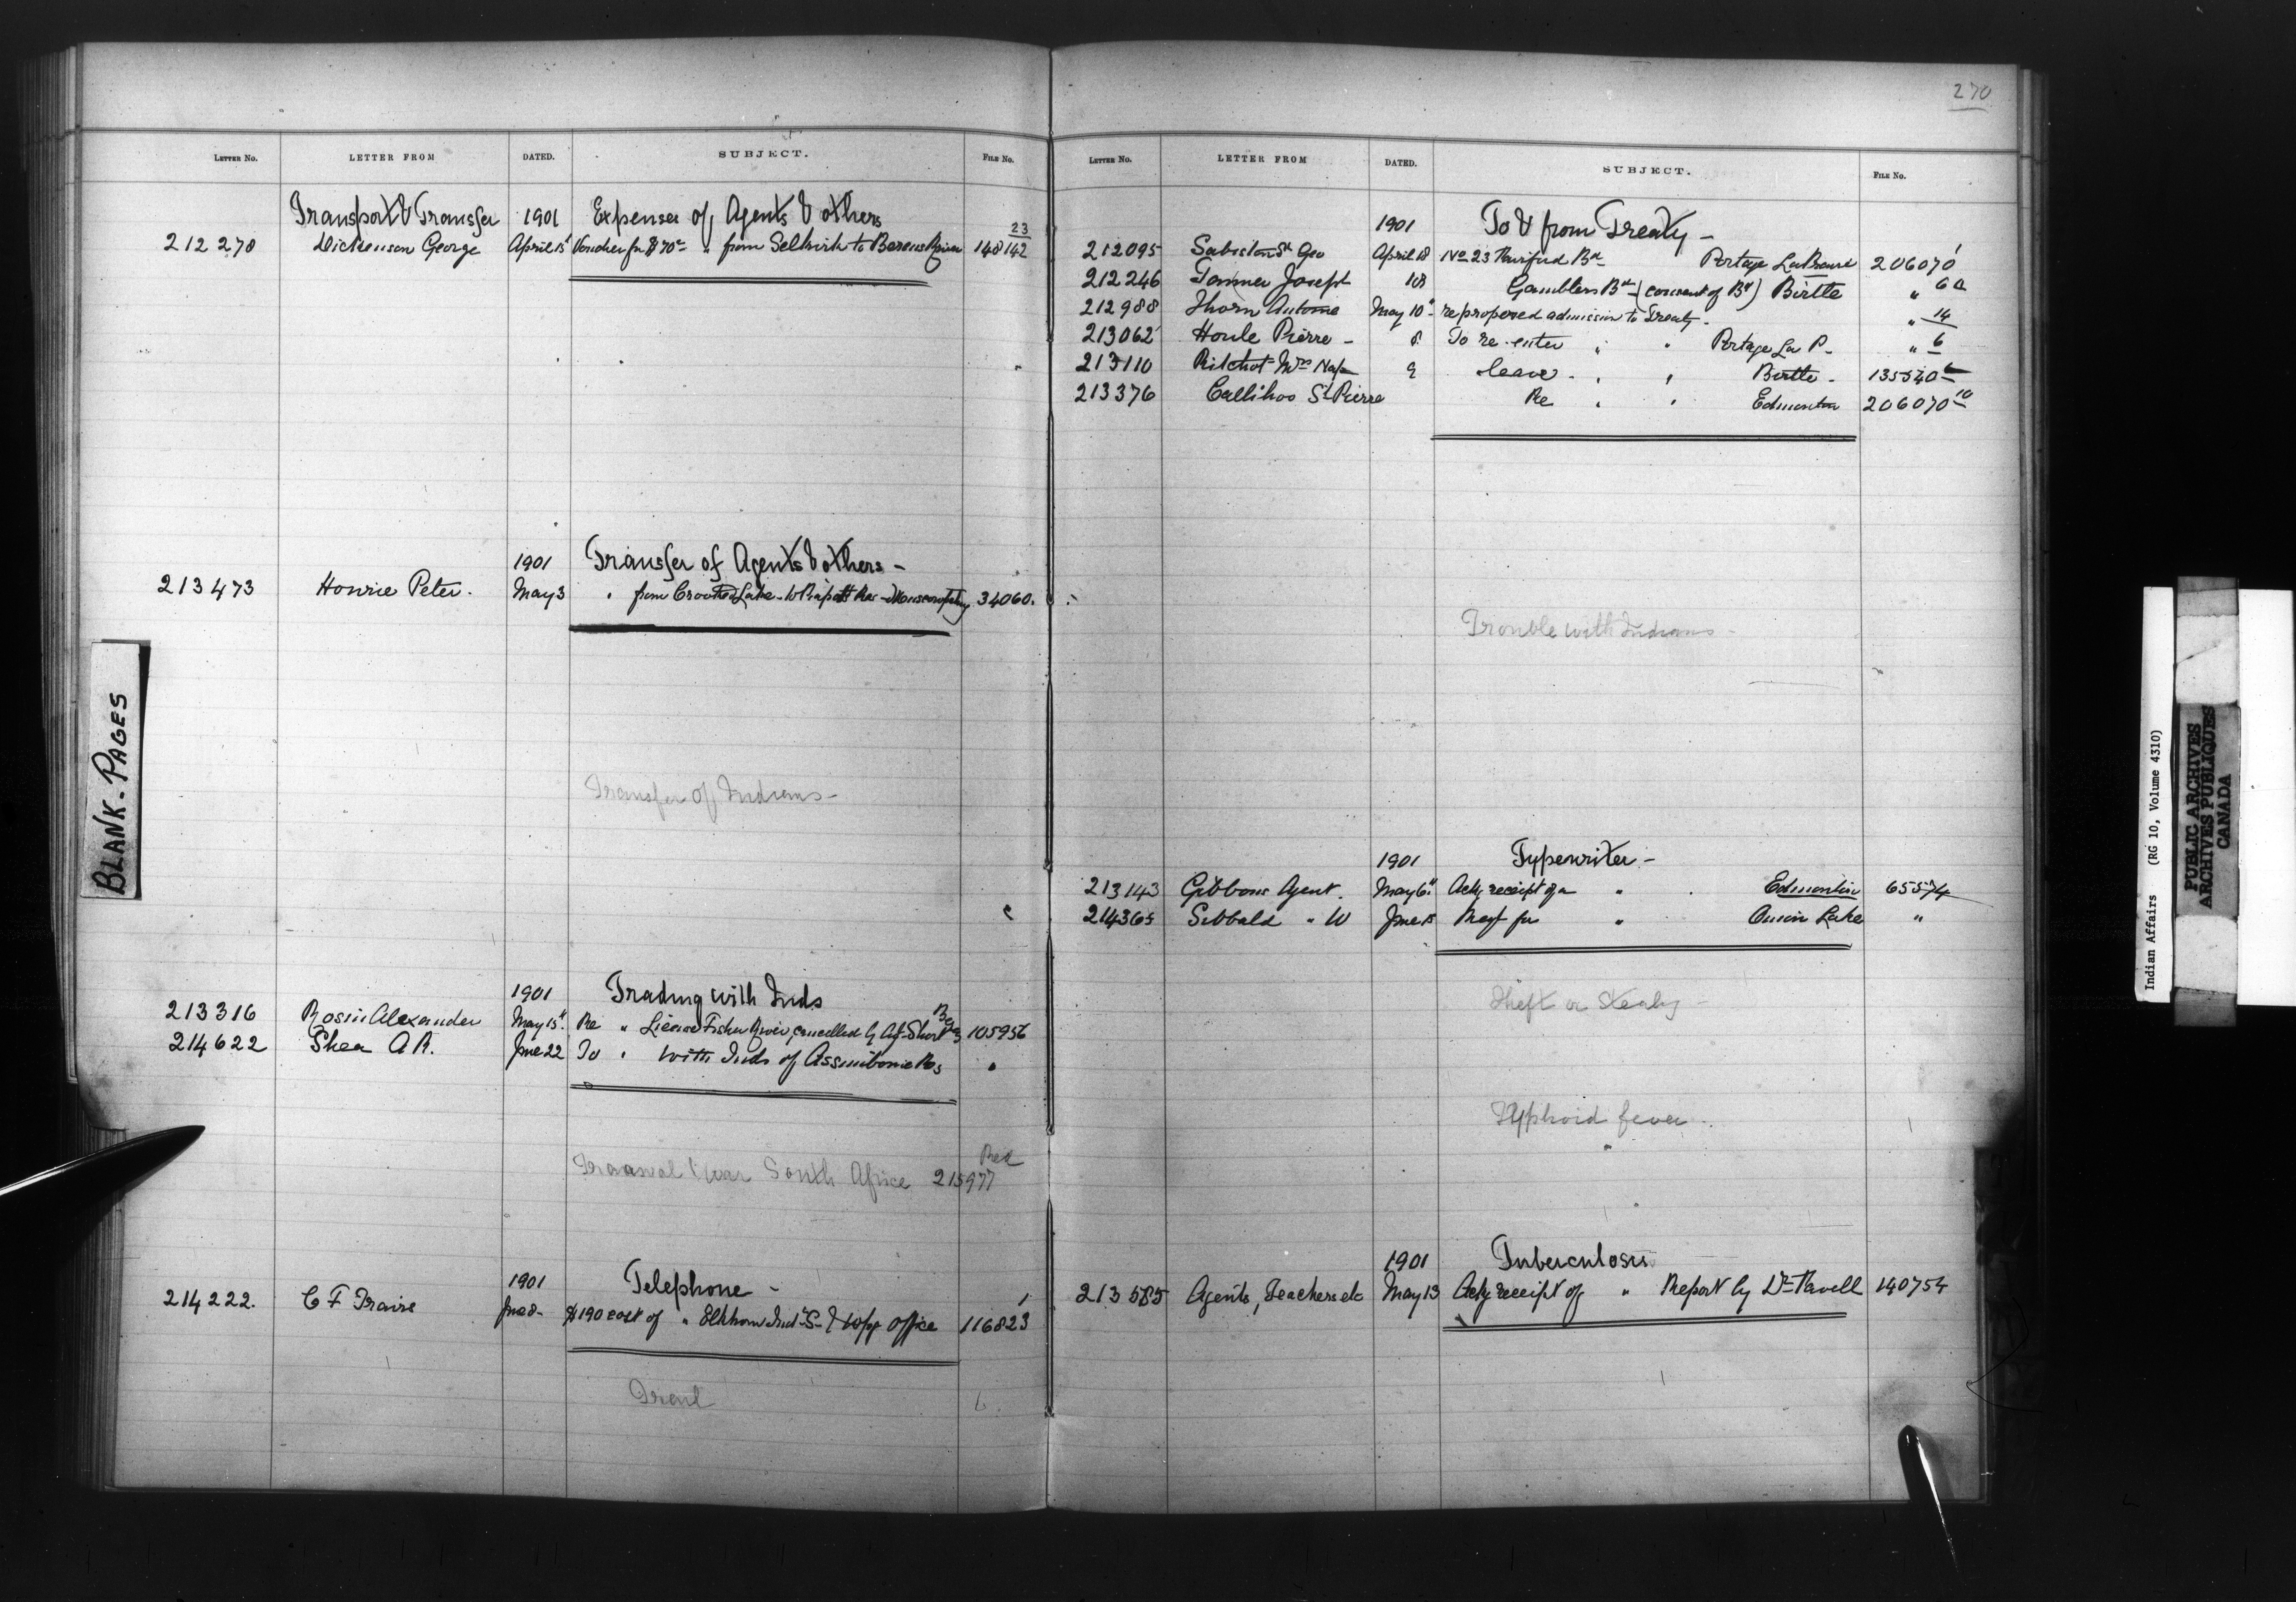 270
LETTER NO. LETTER FROM DATED. SUBJECT. FILE NO.
Transport & Transfer 1901 Expenses of Agents & others
212270 Dickenson George April 15" Voucher for $70 " from Selkirk to Berens River 148142 23
1901 Transfer of Agents & others -
213473 Hourie Peter. May 3 " from Crooked Lake 34060.
Transfer of Indians -
1901 Trading with Inds
213316 Alexander May 15" Re " License Fisher River, cancelled by Agt Short 105956
214622 Shea A R. June 22 To " with Inds of Assiniboine Res "
Transvaal War South Africa 215977
1901 Telephone -
214222. C F June 8 - $190 cost of " Elkhorn Ind S & Wpg office 116823
Trail
LETTER NO. LETTER FROM DATED. SUBJECT. FILE NO.
1901 To & from Treaty -
212095 Geo April 18 No 23 Portage La 206070 1
212246 Tanner Joseph 18 Gamblers Bd (consent of Bd) Birtle " 6a
212988 Thorn Antoine May 10" re proposed admission to Treaty - " 14
213062 Houle Pierre - 8 To re-enter " " Portage La P - " 6
213110 Ritchot Mrs 9 leave - " " Birtle - 135540
213376 Callihoo St Pierre Re " " Edmonton 206070 10
Trouble with Indians -
1901 Typewriter -
213143 Gibbons Agent. May 6" Ackg receipt of a " Edmonton 65574
214365 Sibbald " W June 15 Reqt for " Onion Lake "
Theft or Stealing -
Typhoid fever
1901 Tuberculosis
213585 Agents, Teachers etc May 13 Ackg receipt of " Report by Dr 140754
BLANK. PAGES
Indian Affairs (RG 10, Volume 4310)
PUBLIC ARCHIVES
ARCHIVES PUBLIQUES
CANADA